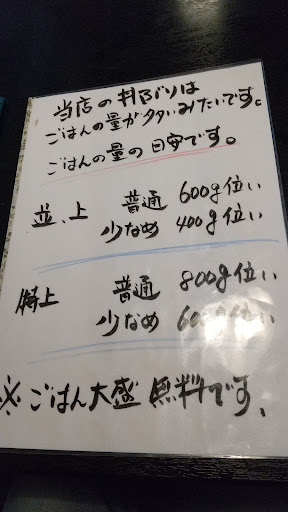 当店の丼ぶりは
ごはんの量が多いみたいです。
ごはんの量の目安です。
並、上 普通 600g位い
少なめ 400g位い
特上 普通 800g位い
少なめ 600g位い
※ごはん大盛無料です、